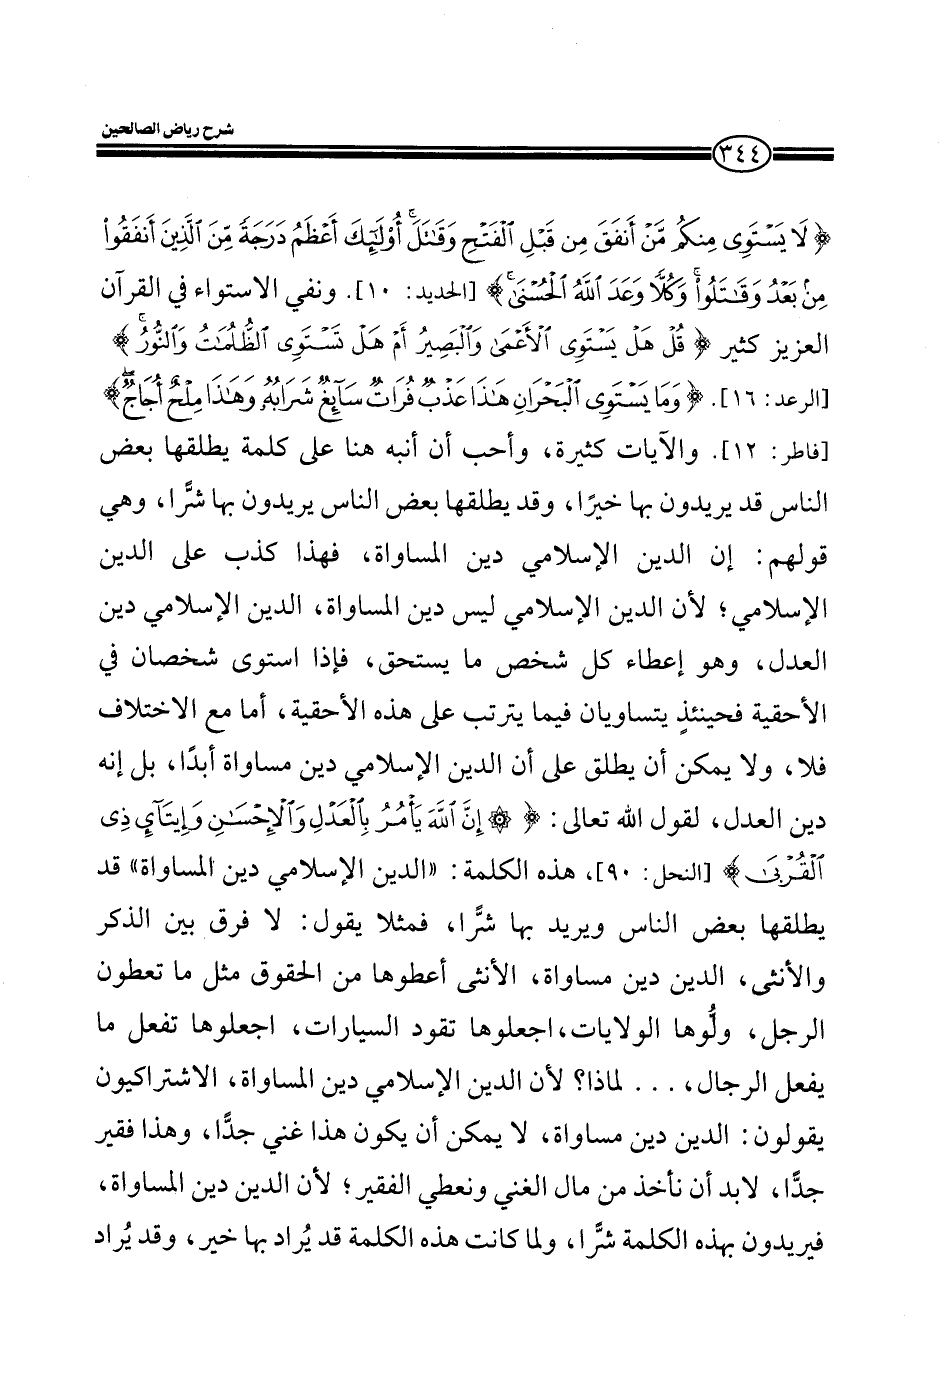 شرح رياض الصالحين
٣٤٤
﴿ لَا يَسْتَوِى مِنكُم مَّنْ أَنفَقَ مِن قَبْلِ ٱلْفَتْحِ وَقَٰتَلَ ۚ أُو۟لَٰٓئِكَ أَعْظَمُ دَرَجَةً مِّنَ ٱلَّذِينَ أَنفَقُوا۟
مِنۢ بَعْدُ وَقَٰتَلُوا۟ ۚ وَكُلًّا وَعَدَ ٱللَّهُ ٱلْحُسْنَىٰ ۚ ﴾ [الحديد: ١٠]. ونفي الاستواء في القرآن
العزيز كثير ﴿ قُلْ هَلْ يَسْتَوِى ٱلْأَعْمَىٰ وَٱلْبَصِيرُ أَمْ هَلْ تَسْتَوِى ٱلظُّلُمَٰتُ وَٱلنُّورُ ۚ ﴾
[الرعد: ١٦]. ﴿ وَمَا يَسْتَوِى ٱلْبَحْرَانِ هَٰذَا عَذْبٌ فُرَاتٌ سَآئِغٌ شَرَابُهُۥ وَهَٰذَا مِلْحٌ أُجَاجٌ ۖ ﴾
[فاطر: ١٢]. والآيات كثيرة، وأحب أن أنبه هنا على كلمة يطلقها بعض
الناس قد يريدون بها خيرًا، وقد يطلقها بعض الناس يريدون بها شرًّا، وهي
قولهم: إن الدين الإسلامي دين المساواة، فهذا كذب على الدين
الإسلامي؛ لأن الدين الإسلامي ليس دين المساواة، الدين الإسلامي دين
العدل، وهو إعطاء كل شخص ما يستحق، فإذا استوى شخصان في
الأحقية فحينئذٍ يتساويان فيما يترتب على هذه الأحقية، أما مع الاختلاف
فلا، ولا يمكن أن يطلق على أن الدين الإسلامي دين مساواة أبدًا، بل إنه
دين العدل، لقول الله تعالى: ﴿ ۞ إِنَّ ٱللَّهَ يَأْمُرُ بِٱلْعَدْلِ وَٱلْإِحْسَٰنِ وَإِيتَآئِ ذِى
ٱلْقُرْبَىٰ ﴾ [النحل: ٩٠]، هذه الكلمة: «الدين الإسلامي دين المساواة» قد
يطلقها بعض الناس ويريد بها شرًّا، فمثلا يقول: لا فرق بين الذكر
والأنثى، الدين دين مساواة، الأنثى أعطوها من الحقوق مثل ما تعطون
الرجل، ولُّوها الولايات، اجعلوها تقود السيارات، اجعلوها تفعل ما
يفعل الرجال، . . . لماذا؟ لأن الدين الإسلامي دين المساواة، الاشتراكيون
يقولون: الدين دين مساواة، لا يمكن أن يكون هذا غني جدًّا، وهذا فقير
جدًّا، لابد أن نأخذ من مال الغني ونعطي الفقير؛ لأن الدين دين المساواة،
فيريدون بهذه الكلمة شرًّا، ولما كانت هذه الكلمة قد يُراد بها خير، وقد يُراد